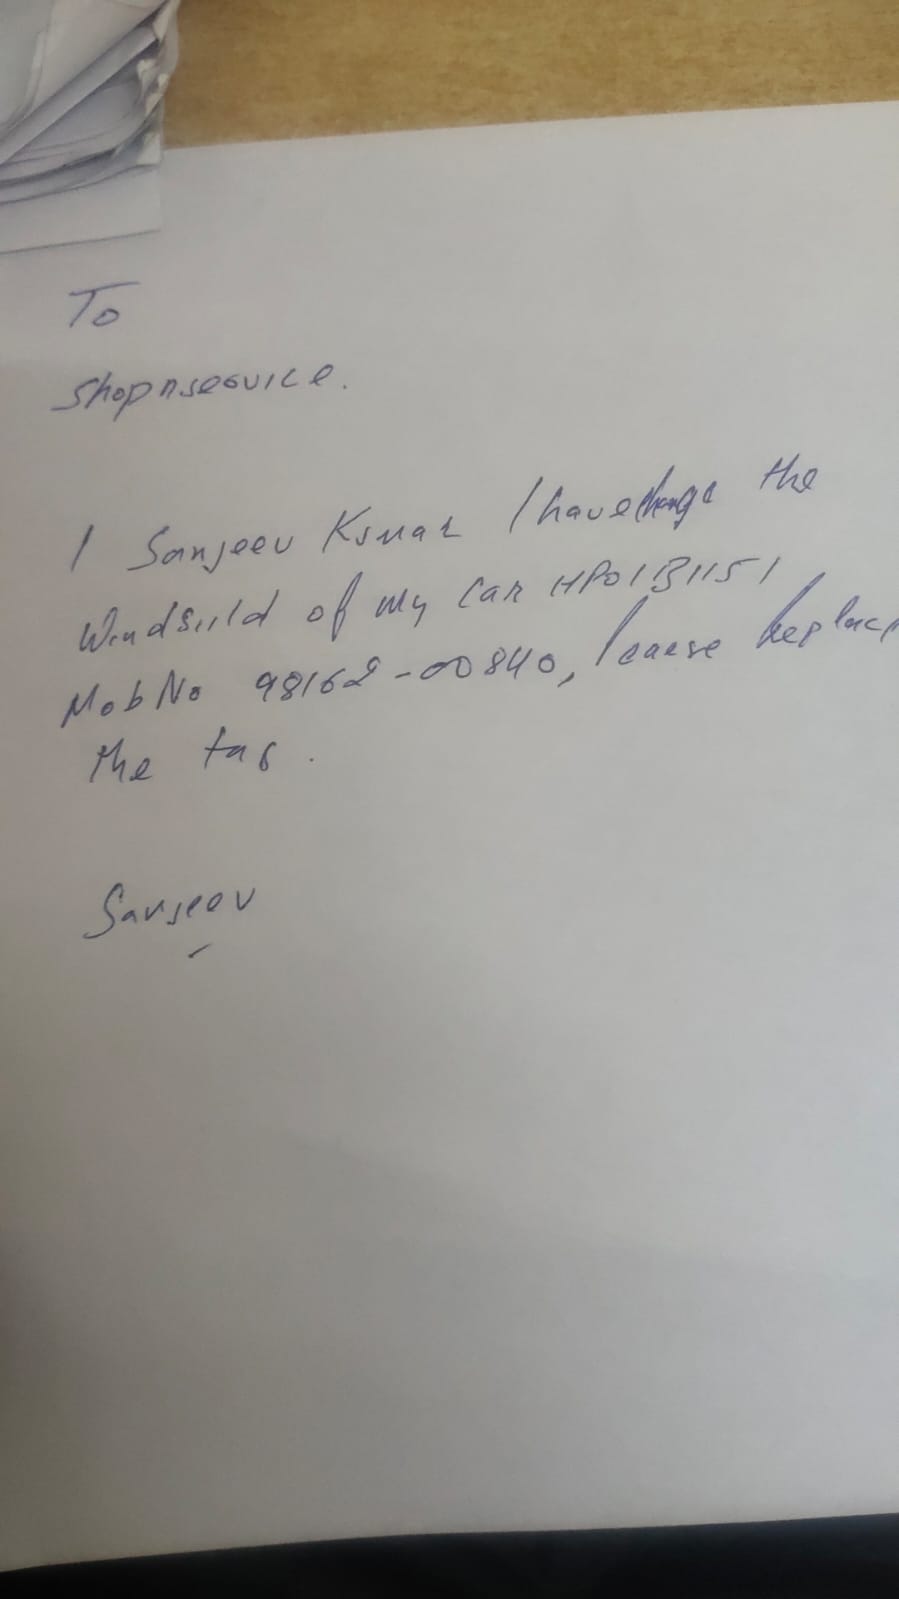 To
Shopnservice.
I Sanjeev Kumar I have change the
Windsild of my Car HP01B1151
Mob No 98162-00840, Pease Replace
the tag.
Sanjeev